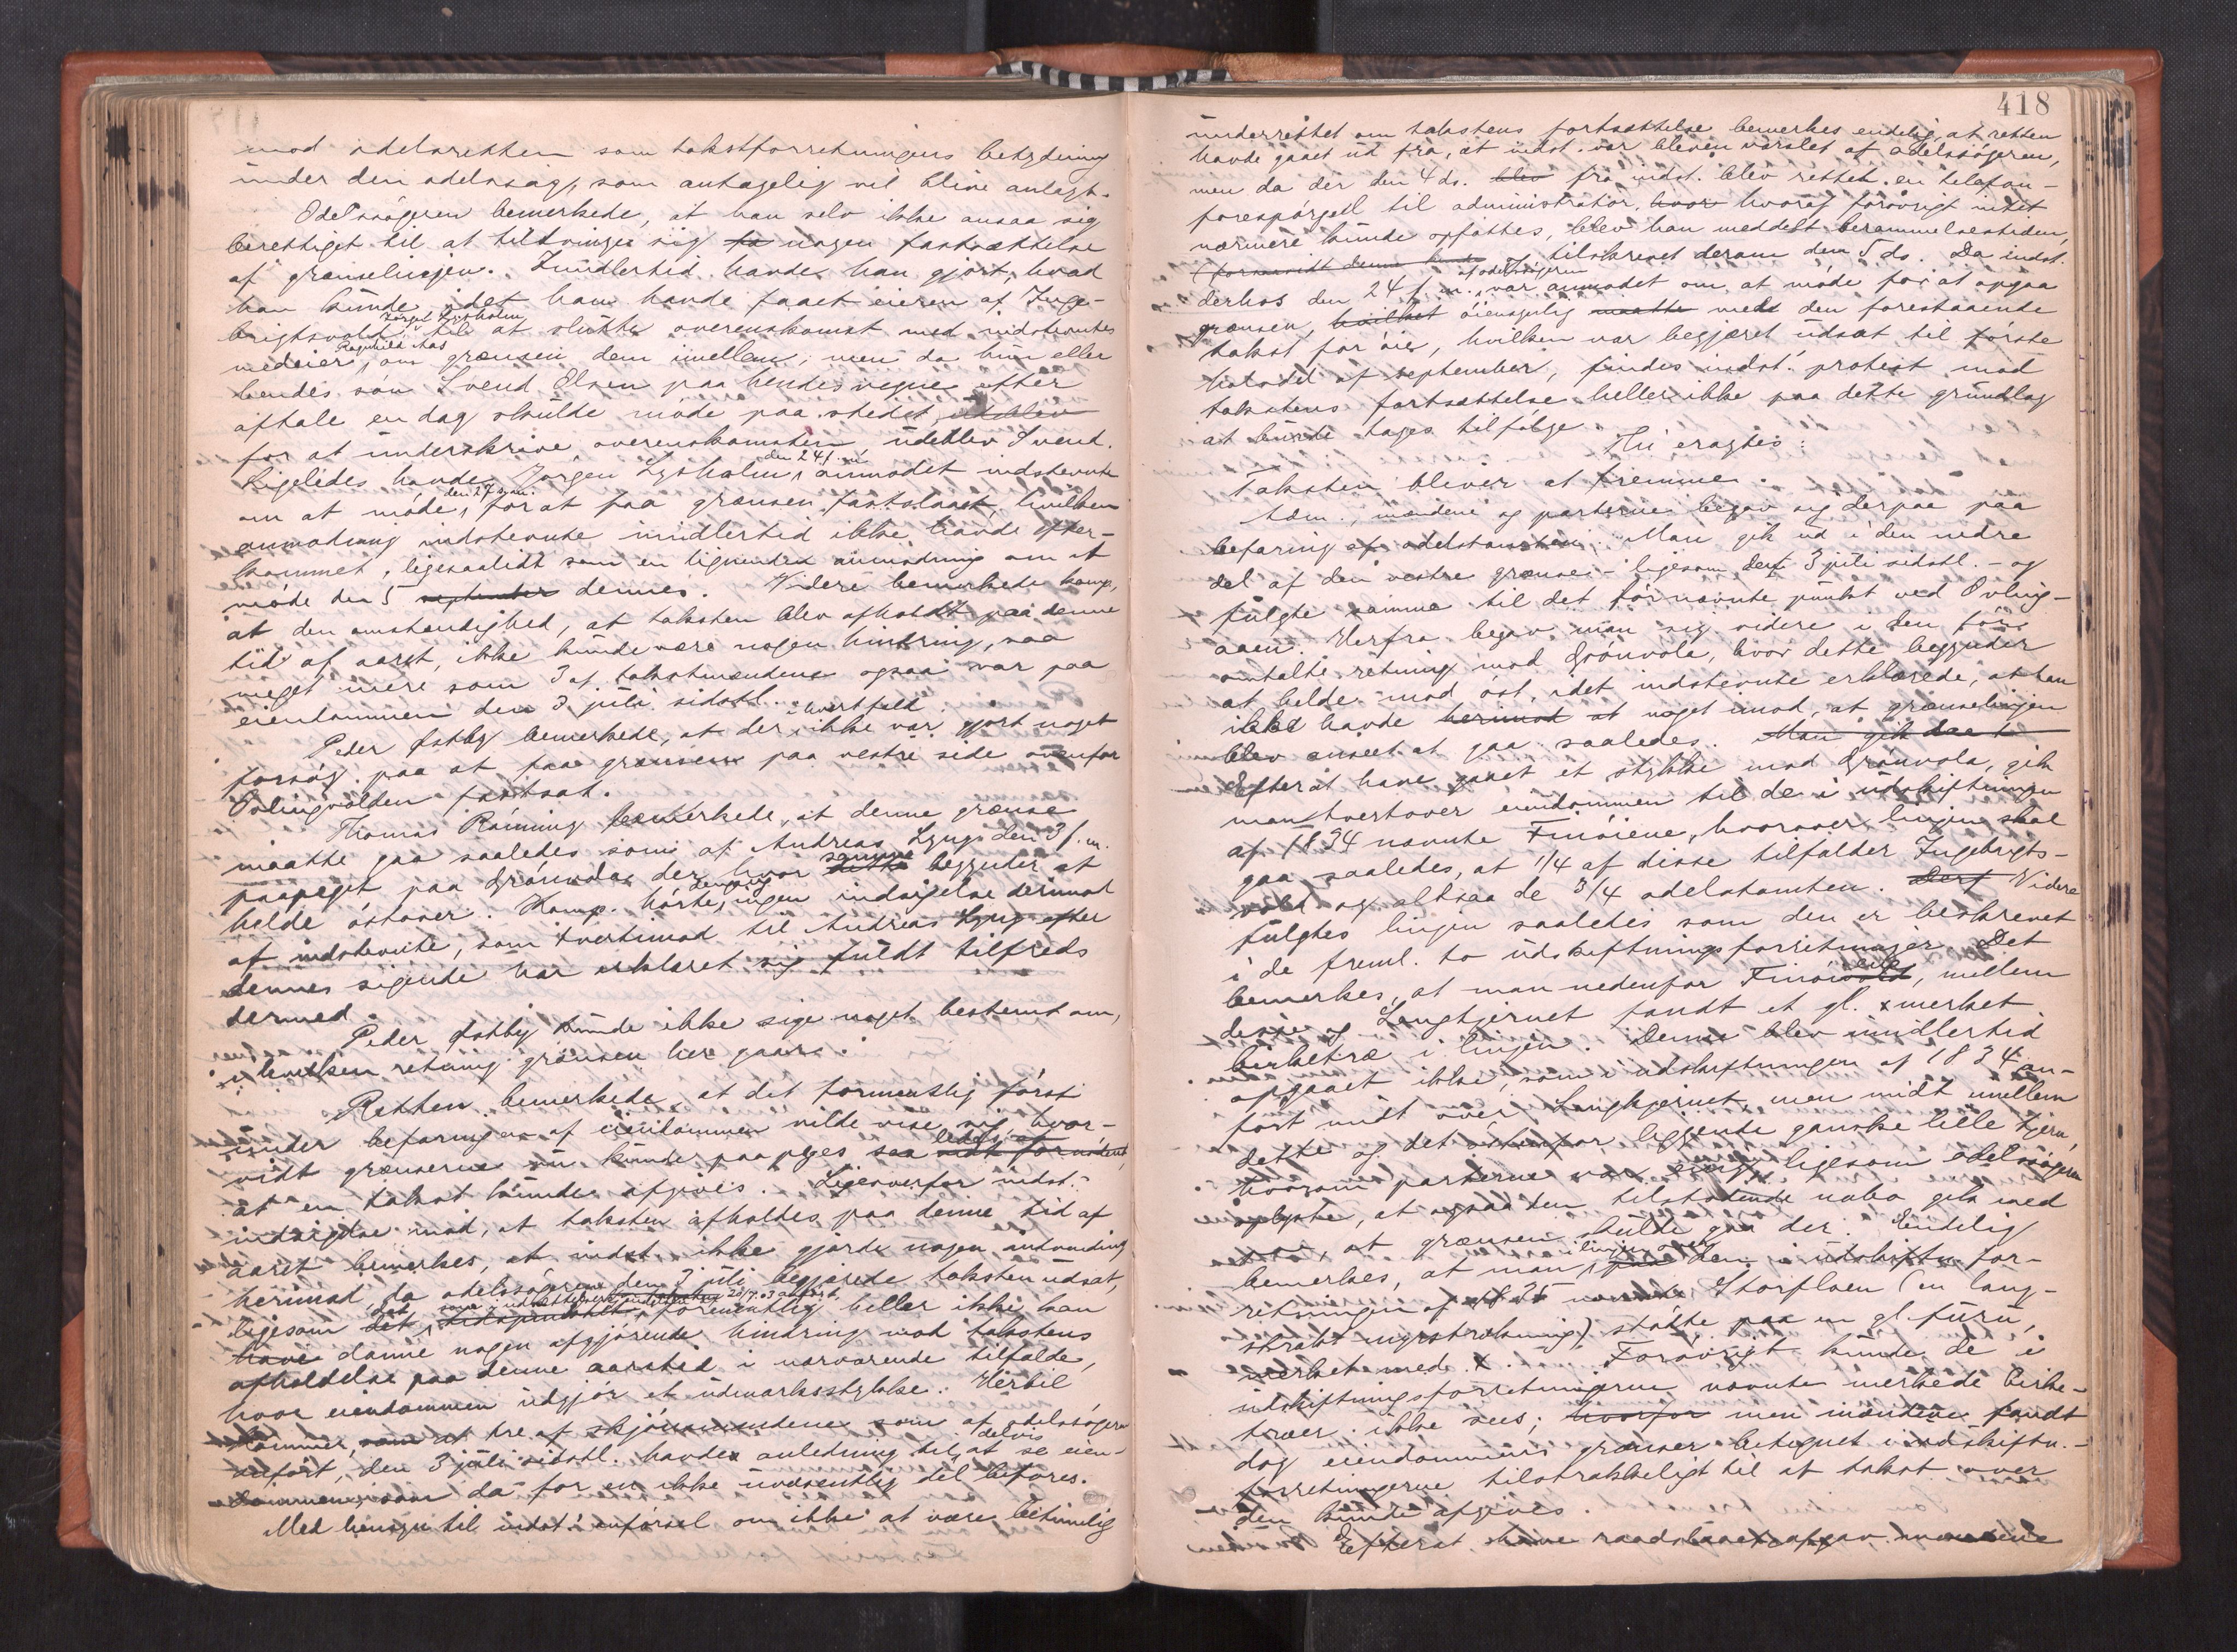 mod odelsretten som takstforretningens betydning
under den odelssag, som antagelig vil blive anlagt.
Odelssøgeren bemerkede, at han selv ikke ansaa sig
berettiget til at tiltvinge sig to nogen fastsættelse
af grænselinjen. Imidlertid havde han gjort, hvad
han kunde, idet han havde faaet eieren af Inge-
brigtsvold, Jørgen Lysholm, til at slutte overenskomst med indstevntes
medeier, Ragnhild Aas om grænsen dem imellem; men da hun eller
hendes søn Svend Olsen paa hendes vegne efter
aftale en dag skulde møde paa stedet udeblev
for at underskrive overenskomsten udeblev Svend.
Ligeledes havde Jørgen Lysholm den 24 f.m. anmodet indstevnte
om at møde den 27 s.m. for at faa grænsen fastslaaet, hvilken
anmodning indstevnte imidlertid ikke havde efter-
kommet, ligesaalidt som en lignende anmodning om at
møde den 5 september dennes. Videre bemerkede komp.,
at den omstændighed, at taksten blev afholdt paa denne
tid af aaret, ikke kunde være nogen hindring, saa
meget mere som 3 af takstmændene ogsaa var paa
eiendommen den 3 juli sidstl.
Peder Østby bemerkede, at der i hvert fald ikke var gjort noget
forsøg paa at faa grænsen paa vestre side ovenfor
Ørlingvolden fastsat.
Thomas Rønning bemerkede, at denne grænse
maatte gaa saaledes som af Andreas Lyng den 3 f.m.
paapeget paa Grønvola der, hvor dette samme begynder at
helde østover. Komp. hørte dengang ingen indsigelse derimod
af indstevnte, som tvertimod til Andreas Lyng efter
dennes sigende har erklæret sig fuldt tilfreds
dermed.
Peder Østby kunde ikke sige noget bestemt om,
i hvilken retning grænsen her gaar.
Retten bemerkede, at det formentlig først
under befaringen af eiendommen vilde vise sig, hvor-
vidt grænserne nu kunde paapeges saa vidt fornødent,
at en takst kunde afgives. Ligeoverfor indst.
indsigelse mod, at taksten afholdes paa denne tid af
aaret bemerkes, at indst. ikke gjorde nogen indvending
herimod, da odelssøgeren den 3 juli begjærede taksten udsat
ligesom det, tidspunktet, formentlig heller ikke kan
have danne nogen afgjørende hindring mod takstens
afholdelse paa denne aarstid i nærværende tilfælde,
hvor eiendommen udgjør et udmarksstykke. Hertil
kommer, som at tre af skjønsmændene som af odelssøgeren
anført, den 3 juli sidstl. havde anledning til delvis at se eien-
dommen, som da for en ikke uvæsentlig del befores.
Med hensyn til indst.' anførsel om ikke at være betimelig
418
underrettet om takstens fortsættelse bemerkes endelig, at retten
havde gaaet ud fra, at indst. var bleven varslet af odelssøgeren,
men da der den 4 ds. blev fra indst. blev rettet en telefon-
forespørgsel til administrator, hvor hvoraf forøvrigt intet
nærmere kunde opfattes, blev han meddelt berammelsestiden,
(forsaavidt denne kunde og tilskrevet derom den 5 ds. Da indst.
derhos den 24 f.m. af odelssøgeren var anmodet om at møde for at opgaa
grænsen, hvilket øiensynlig maatte med den forestaaende
takst for øie, hvilken var begjæret udsat til første
halvdel af september, findes indst.' protest mod
takstens fortsættelse heller ikke paa dette grundlag
at kunde tages tilfølge.
Thi eragtes:
Taksten bliver at fremme.
Adm., mændene og parterne begav sig derpaa paa
befaring af odelstomten. Man gik ud i den nedre
del af den vestre grænse – ligesom den 3 juli sidstl. – og
fulgte samme til det fornævnte punkt ved Ørling-
aaen. Herfra begav man sig videre i den før
omtalte retning mod Grønvola, hvor dette begynder
at helde mod øst, idet indstevnte erklærede, at han
ikke havde herimod at noget imod, at grænselinjen
blev anseet at gaa saaledes. Man gik daa
Efter at have gaaet et stykke mod Grønvola, gik
man tvertover eiendommen til de i udskiftningen
af 1834 nævnte Finøiene, hvorover linjen skal
gaa saaledes, at 1/4 af disse tilfalder Ingebrigts-
vold og altsaa de 3/4 odelstomten. Derf Videre
fulgtes linjen saaledes som den er beskrevet
i de freml. to udskiftningsforretninger. Det
bemerkes, at man nedenfor Finøiene, mellem
disse og Langtjernet fandt et gl. x merket
birketræ i linjen. Denne blev imidlertid
opgaaet ikke, som i udskiftningen af 1834 an-
ført midt over Langtjernet, men midt imellem
dette og det østenfor liggende ganske lille tjern,
hvorom parterne var enige, ligesom odelssøgeren
oplyste, at ogsaa den tilstødende nabo gik med
paa, at grænsen skulde gaa der. Endelig
bemerkes, at man i linjen over den i udskiftn.for-
retningen af 1835 nævnte Storfloen (en lang-
strakt myrstrækning), støtte paa en gl. furu,
merket med x. Forøvrigt kunde de i
udskiftningsforretningerne nævnte merkede birke-
træer ikke sees; hvorfor men mændene fandt
dog eiendommens grænser betegnet i udskiftn.-
forretningerne tilstrækkeligt til at takst over
den kunde afgives.
Efter at have raadslaaet afgav mændene